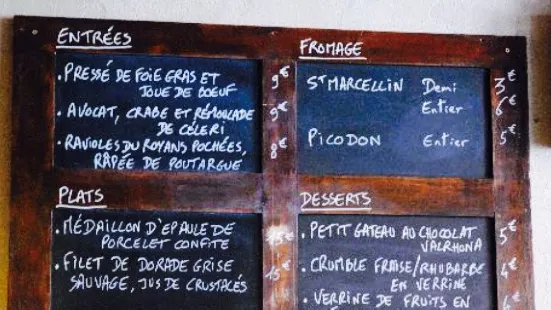 ENTRÉES
. PRESSÉ DE FOIE GRAS ET
JOUE DE BOEUF 9€
. AVOCAT, CRABE ET RÉMOULADE 9€
DE CÉLERI
. RAVIOLES DU ROYANS POCHÉES, 8€
RÂPÉE DE POUTARGUE
FROMAGE
ST MARCELLIN Demi 3€
Entier 6€
PICODON Entier 5€
PLATS
. MÉDAILLON D'EPAULE DE
PORCELET CONFITE 15€
. FILET DE DORADE GRISE 15€
SAUVAGE, JUS DE CRUSTACÉS
DESSERTS
. PETIT GATEAU AU CHOCOLAT 5€
VALRHONA
. CRUMBLE FRAISE/RHUBARBE 4€
EN VERRINE
. VERRINE DE FRUITS EN